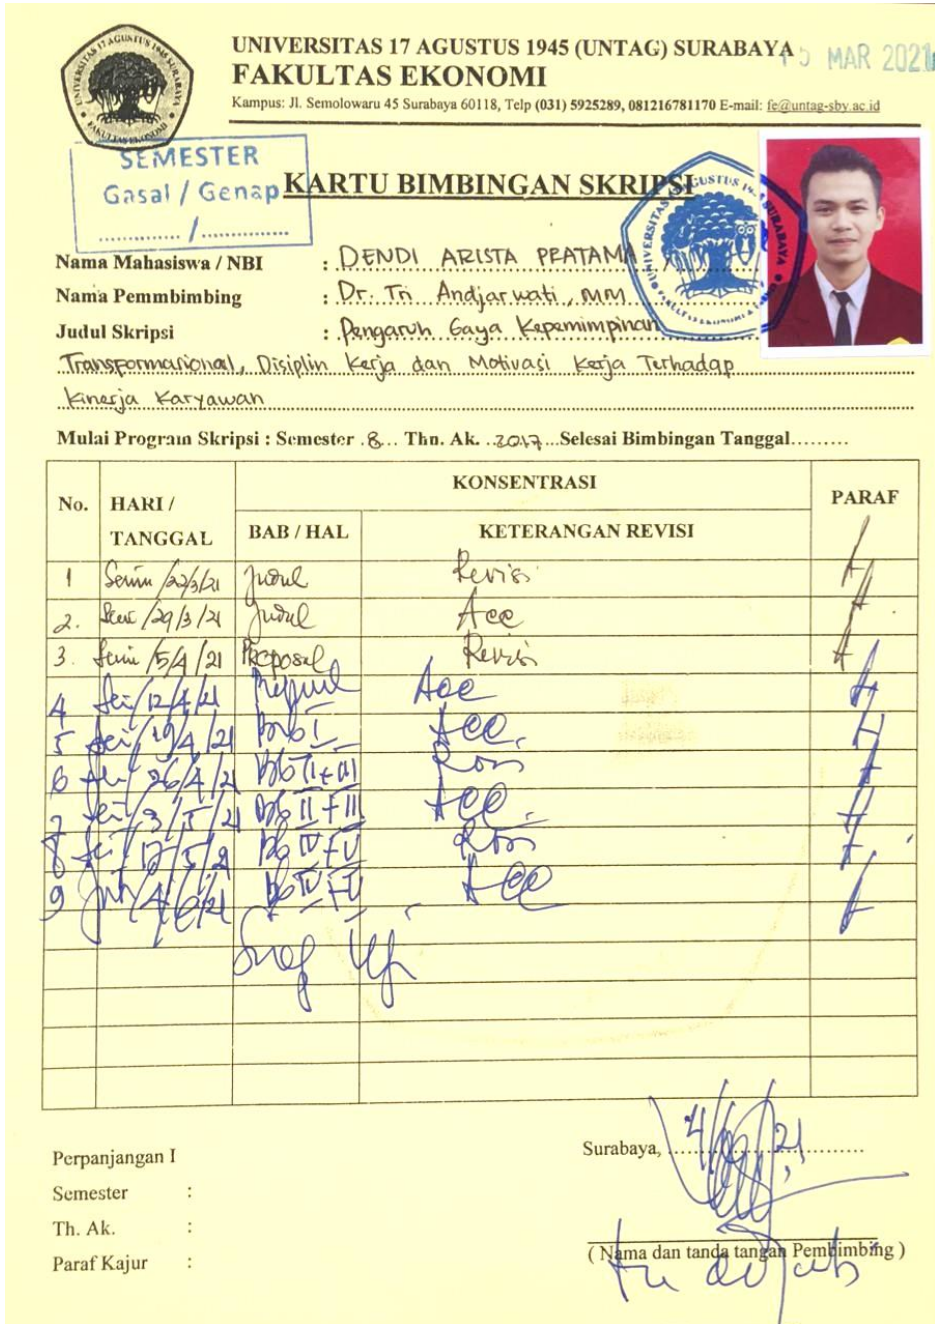 UNIVERSITAS 17 AGUSTUS 1945 (UNTAG) SURABAYA
15 MAR 2021
FAKULTAS EKONOMI
Kampus: Jl. Semolowaru 45 Surabaya 60118, Telp (031) 5925289, 081216781170 E-mail: fe@untag-sby.ac.id
SEMESTER
Gasal / Genap
............. / .............
KARTU BIMBINGAN SKRIPSI
Nama Mahasiswa / NBI : DENDI ARISTA PRATAMA /
Nama Pemmbimbing : Dr. Tri Andjarwati, MM
Judul Skripsi : Pengaruh Gaya Kepemimpinan
Transformasional, Disiplin Kerja dan Motivasi Kerja Terhadap
Kinerja Karyawan
Mulai Program Skripsi : Semester .8... Thn. Ak. ..2017...Selesai Bimbingan Tanggal.........
No. HARI / TANGGAL KONSENTRASI PARAF
BAB / HAL KETERANGAN REVISI
1 Senin /22/3/21 Judul Revisi
2. /29/3/21 Judul Acc
3. Senin /5/4/21 Proposal Revisi
4 /12/4/21 Acc
5 /19/4/21 Bab I Acc.
6 /26/4/21 Bab II + III
7 /3/5/21 Bab II + III Acc.
8 Bab IV + V
9 /4/6/21 Bab IV + V Acc
Perpanjangan I
Semester :
Th. Ak. :
Paraf Kajur :
Surabaya,
( Nama dan tanda tangan Pembimbing )